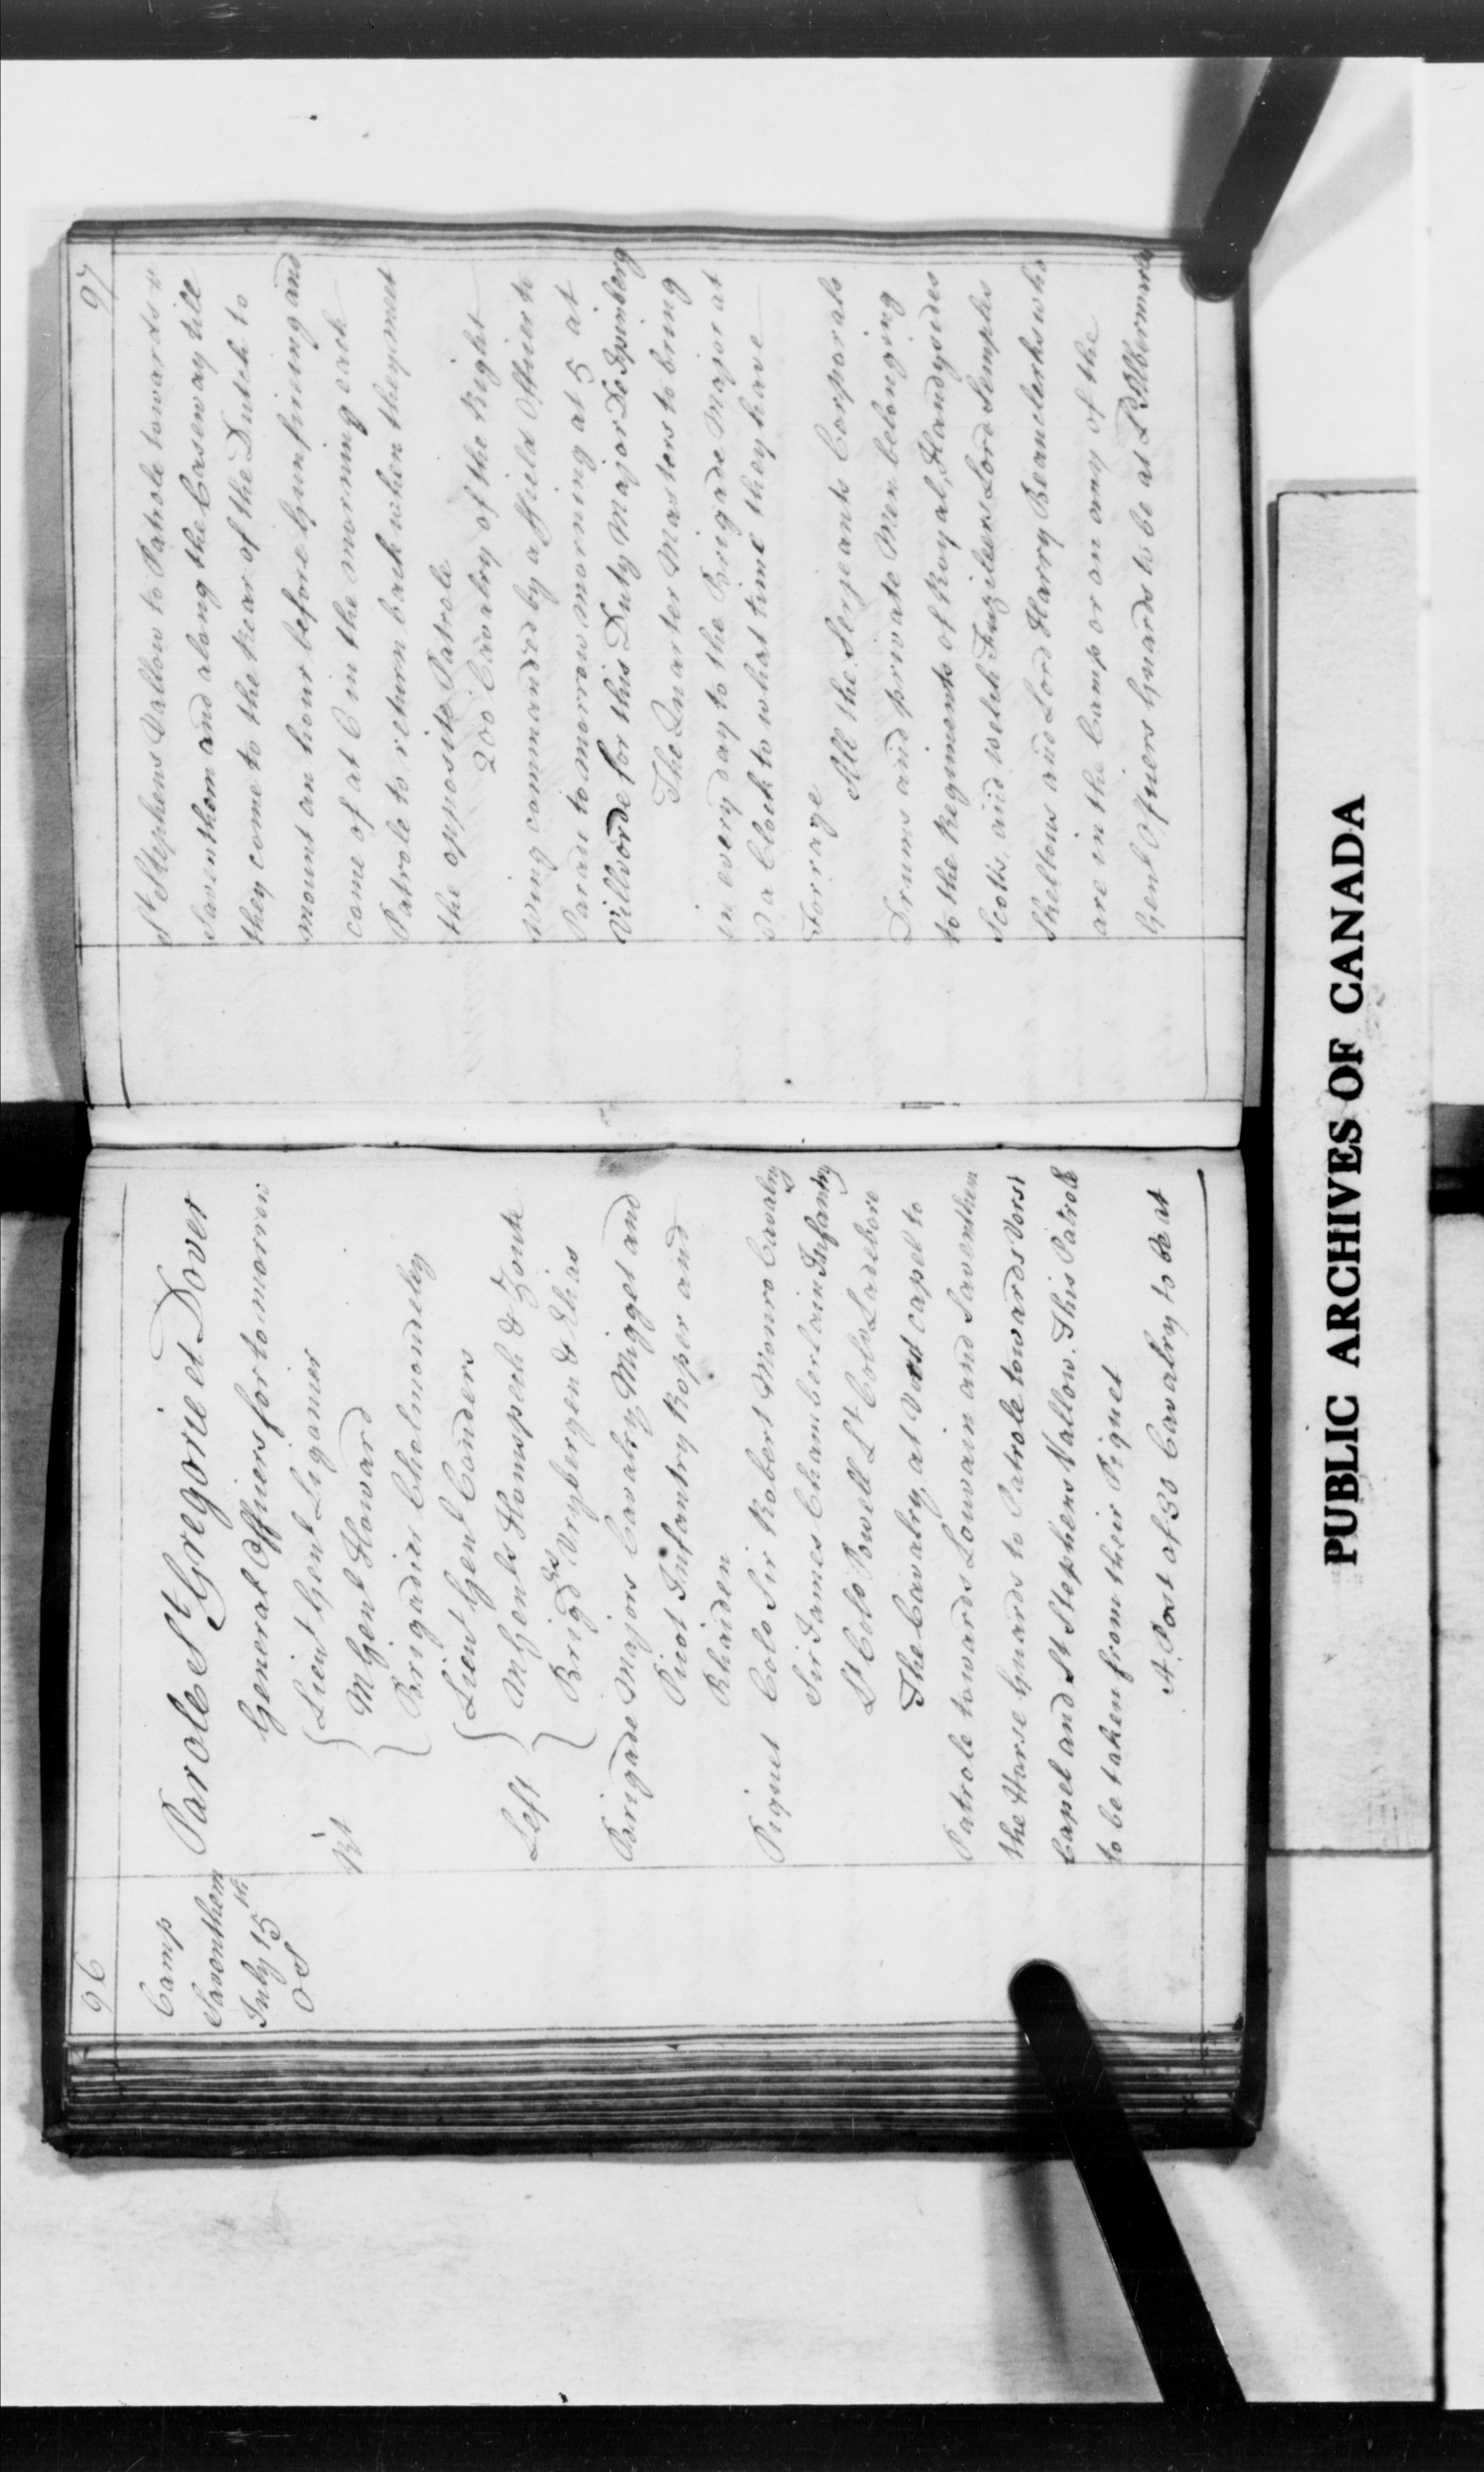 96
Camp
Savonthem
July 15th
OS
Parole St Gregorie et Dover
General Officers for tomorrow
Rt
Lieut Genl Ligonier
M Genl Howard
Brigadier Cholmondeley
Left
Lieut Genl Conders
M Genls Homspech & Zouk
Brigds Vrybergen & Elias
Brigade Majors Cavalry Migget and
Picot Infantry Roper and
Rhaiden
Piquet Colo Sir Robert Monro Cavalry
Sir James Chamberlain Infantry
Lt Colo Powell Lt Colo Ladebore
The Cavalry at Vorst capel to
Patrole towards Louvain and Saventhem
the Horse Guards to Patrole towards Vorst
Capel and St Stephens Vallow. This Patrole
to be taken from their Piquet
A Post of 50 Cavalry to be at
97
St Stephens Vallow to Patrole towards
Saventhem and along the Caseway till
they come to the Rear of the Dutch to
mount an hour before Gunfireing and
come of at 6 in the morning each
Patrole to return back when they meet
the opposite Patrole
200 Cavalry of the Right
wing commanded by a ffield Officer to
Parade to morrow morning at 5 at
Villvorde for this Duty Major De Spimberg
The Quarter Masters to bring
in every day to the Brigade Major at
a Clock to what time they have
Forrage
All the Serjeants Corporals
Drums and private Men belonging
to the Regiments of Royal, Handysides
Scotts, and Welch Fuzileers Lord Semples
Skeltons and Lord Harry Beauclerks who
are in the Camp or on any of the
Genl Officers Guards to be at Ld Albermarles
PUBLIC ARCHIVES OF CANADA